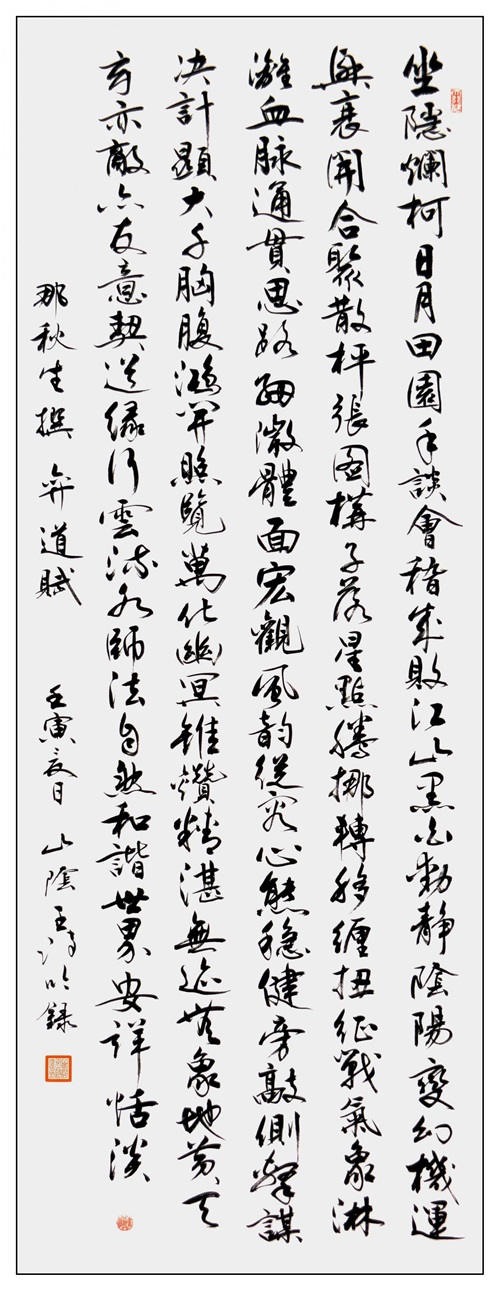 坐隱爛柯日月田園手談會稽成敗江山黑白動靜陰陽變幻機運
興衰開合聚散枰張圖構子落星點騰挪轉移纏扭征戰氣象淋
灕血脉通貫思路細微體面宏觀風韵從容心態穩健旁敲側擊謀
决計顯大千胸腹鴻覽萬化幽冥錐鑽精湛無迹無象地黄天
玄亦敵亦友意契行雲流水師法自然和諧世界安詳恬淡
那秋生撰 弈道賦 壬寅夏日 山陰王錄